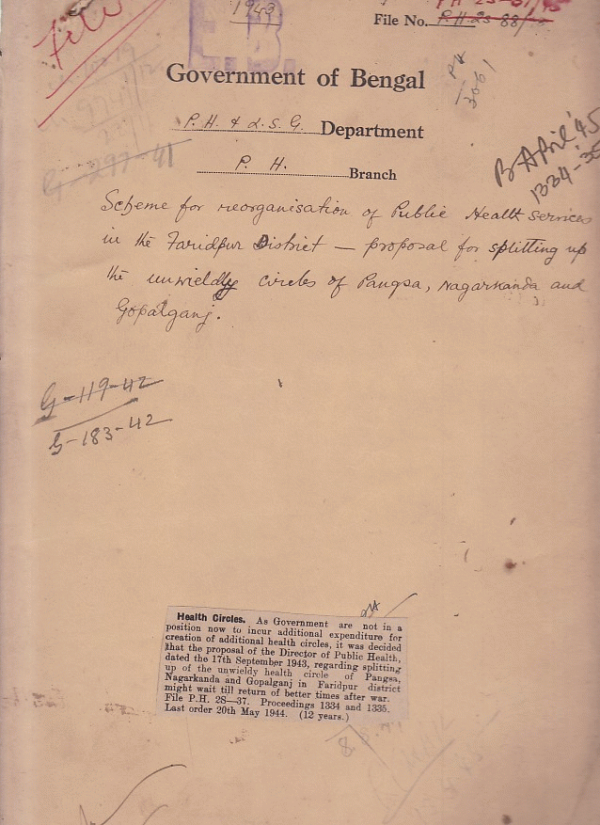 1943
File No.
E.B.
Government of Bengal
P.H. & L.S.G. Department
P. H. Branch
B April '45
Scheme for reorganisation of Public Health services
in the Faridpur District — proposal for splitting up
the unwieldy circles of Pangsa, Nagarkanda and
Gopalganj.
G-119-42
G-183-42
Health Circles. As Government are not in a
position now to incur additional expenditure for
creation of additional health circles, it was decided
that the proposal of the Director of Public Health,
dated the 17th September 1943, regarding splitting
up of the unwieldy health circle of Pangsa,
Nagarkanda and Gopalganj in Faridpur district
might wait till return of better times after war.
File P.H. 2S—37. Proceedings 1334 and 1335.
Last order 20th May 1944. (12 years.)